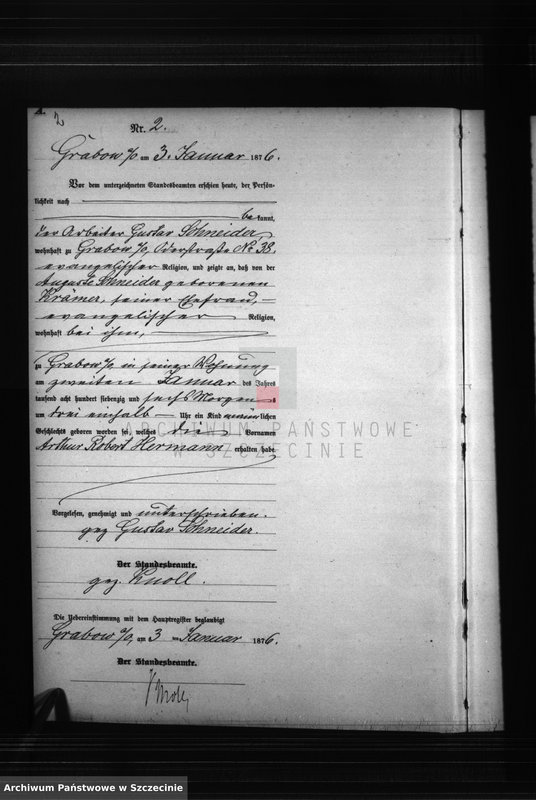 2
Nr. 2.
Grabow a/O am 3. Januar 1876.
Vor dem unterzeichneten Standesbeamten erschien heute, der Persön-
lichkeit nach
bekannt,
der Arbeiter Gustav Schneider,
wohnhaft zu Grabow a/O, Oderstraße No 38,
evangelischer Religion, und zeigte an, daß von der
Auguste Schneider geborenen
Krämer, seiner Ehefrau,
evangelischer Religion,
wohnhaft bei ihm,
zu Grabow a/O in seiner Wohnung
am zweiten Januar des Jahres
tausend acht hundert siebenzig und sechs Morgens
um drei einhalb Uhr ein Kind männlichen
Geschlechts geboren worden sei, welches die Vornamen
Arthur Robert Hermann erhalten habe
ARCHIWUM PAŃSTWOWE
W SZCZECINIE
Vorgelesen, genehmigt und unterschrieben.
gez Gustav Schneider.
Der Standesbeamte.
gez. Knoll.
Die Uebereinstimmung mit dem Hauptregister beglaubigt
Grabow a/O, am 3 ten Januar 1876.
Der Standesbeamte.
Knoll
Archiwum Państwowe w Szczecinie